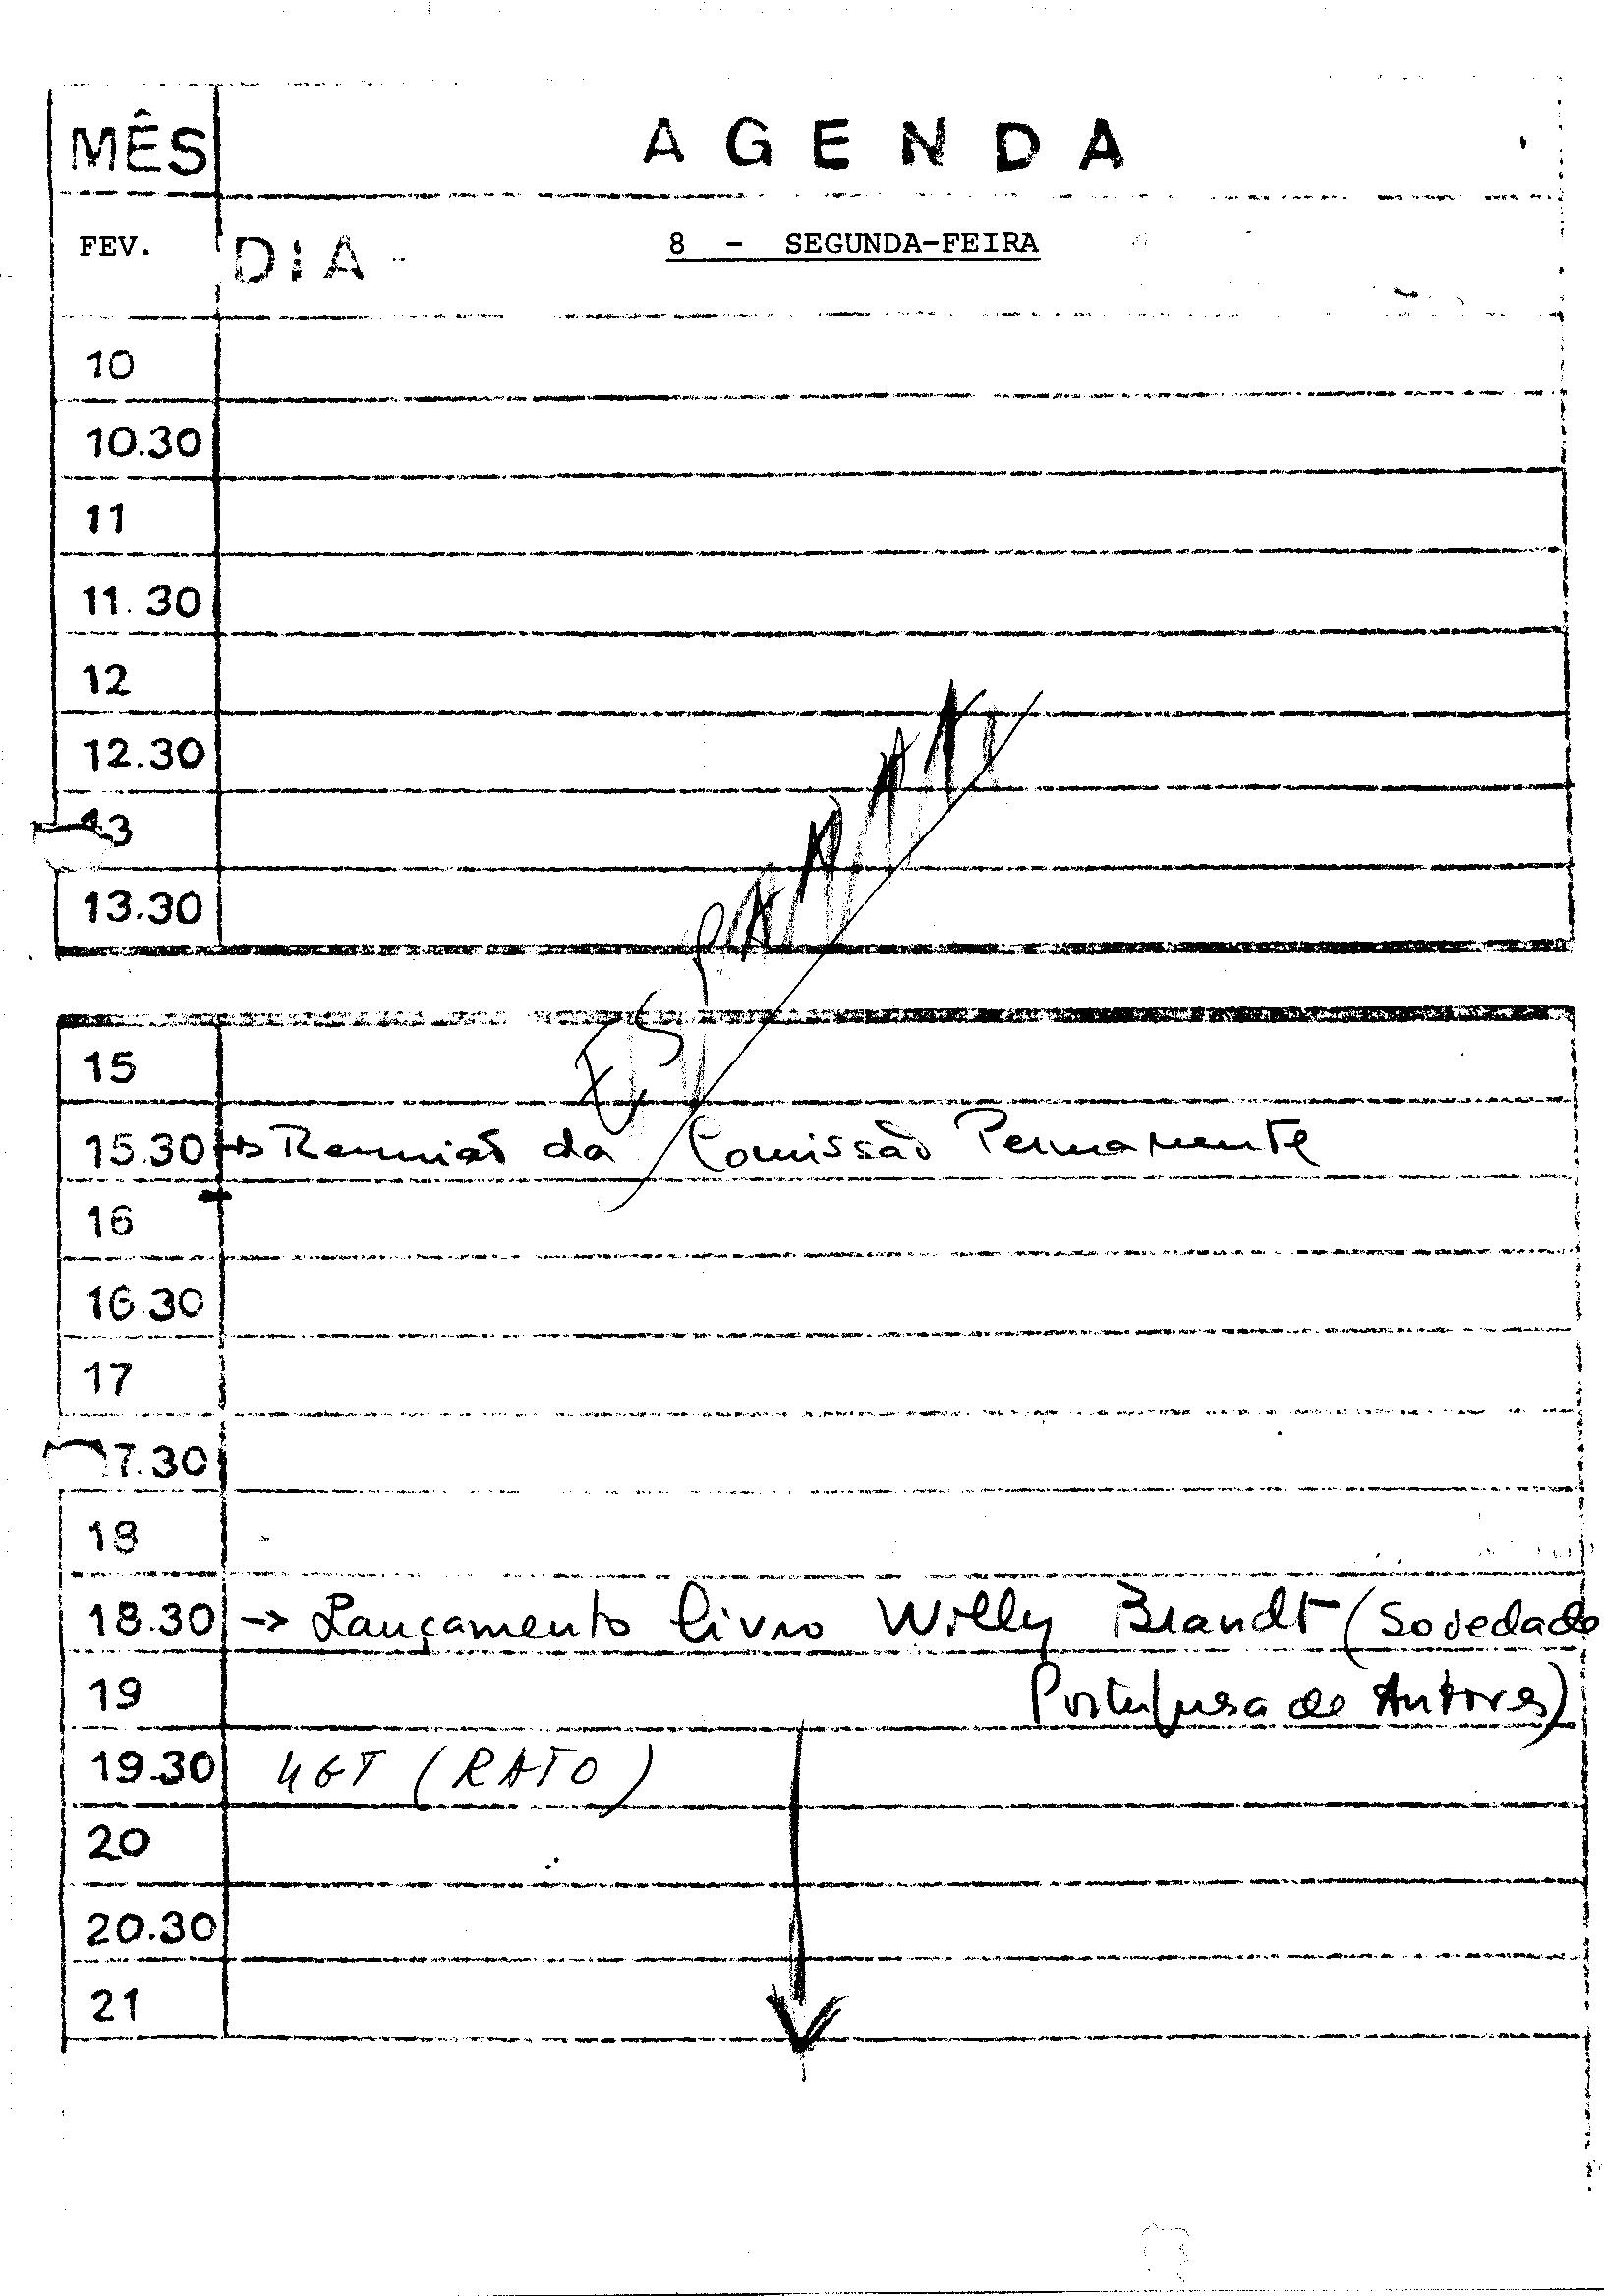 MÊS AGENDA
FEV. DIA 8 - SEGUNDA-FEIRA
10
10.30
11
11.30
12
12.30
13
13.30
ESPANHA
15
15.30 → Reunião da Comissão Permanente
16
16.30
17
17.30
18
18.30 → Lançamento livro Willy Brandt (Sociedade
19 Portuguesa de Autores)
19.30 UGT (RATO)
20
20.30
21